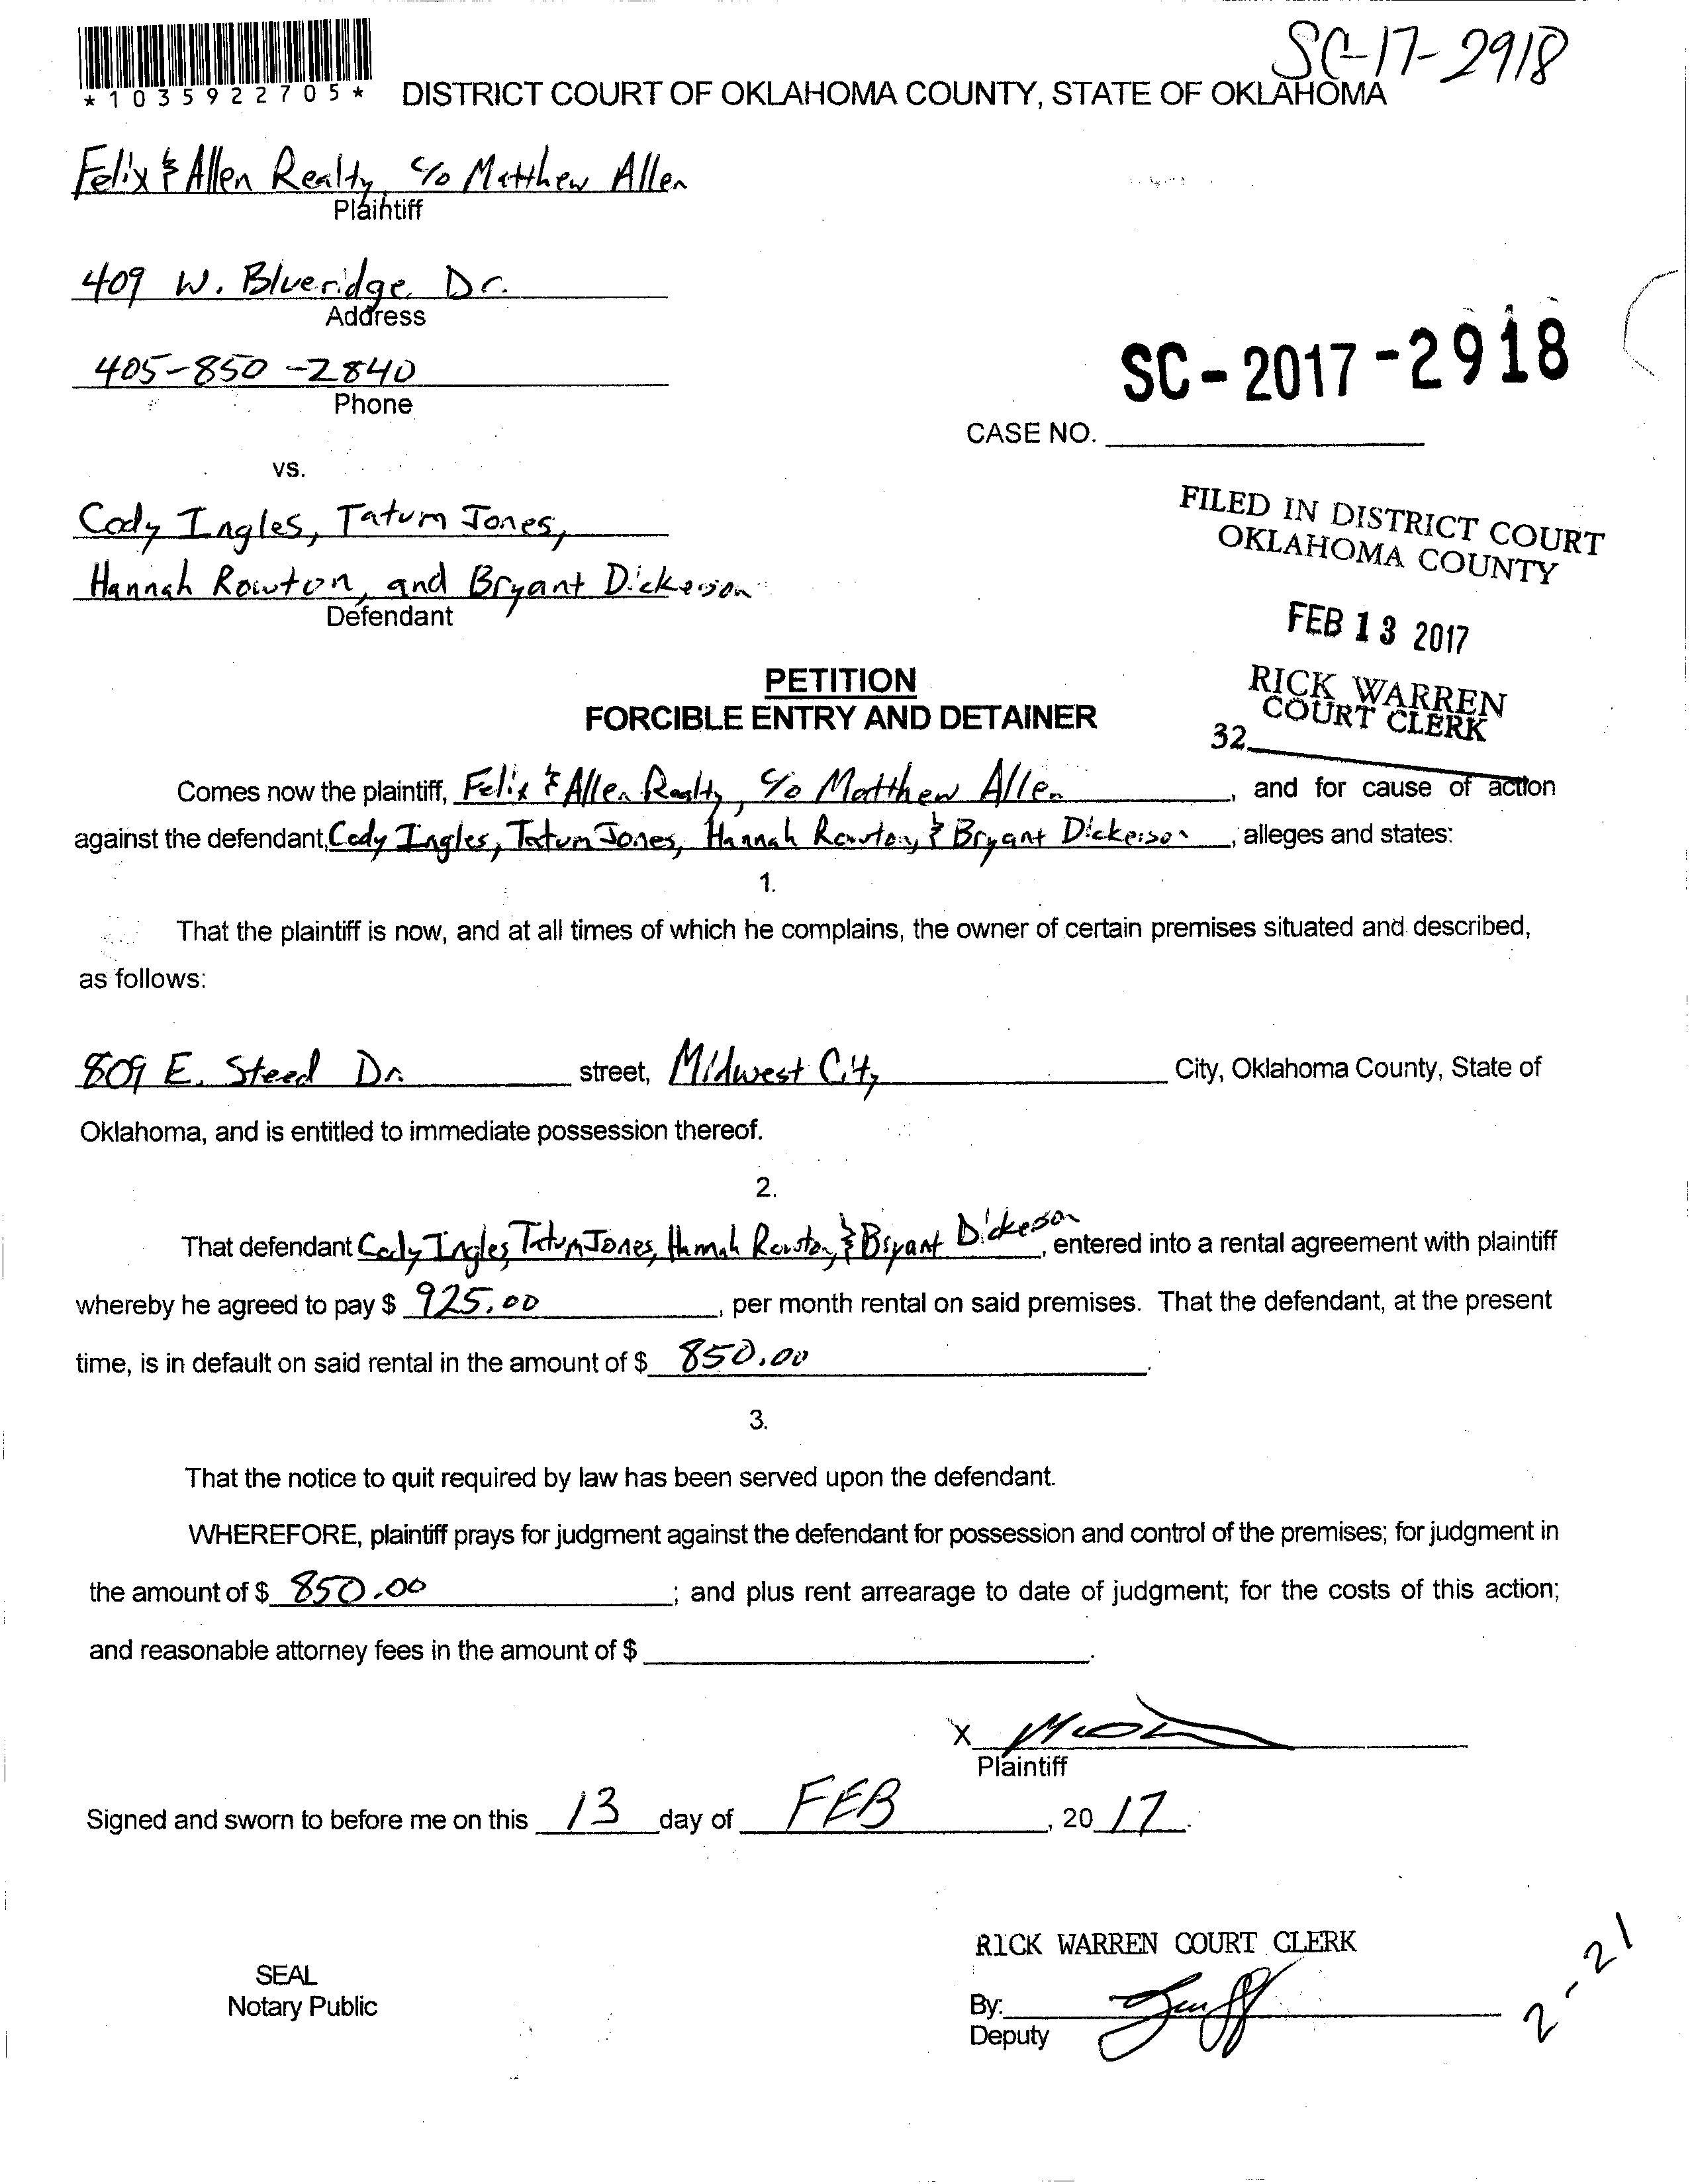 SC-17-2918
*1035922705*
DISTRICT COURT OF OKLAHOMA COUNTY, STATE OF OKLAHOMA
Felix & Allen Realty, c/o Matthew Allen
Plaintiff
409 W. Blueridge Dr.
Address
405-850-2840
Phone
SC-2017-2918
CASE NO.
vs.
Cody Ingles, Tatum Jones,
Hannah Rowton, and Bryant Dickerson
Defendant
FILED IN DISTRICT COURT
OKLAHOMA COUNTY
FEB 13 2017
RICK WARREN
COURT CLERK
32
PETITION
FORCIBLE ENTRY AND DETAINER
Comes now the plaintiff, Felix & Allen Realty, c/o Matthew Allen, and for cause of action
against the defendant, Cody Ingles, Tatum Jones, Hannah Rowton, & Bryant Dickerson, alleges and states:
1.
That the plaintiff is now, and at all times of which he complains, the owner of certain premises situated and described,
as follows:
809 E. Steed Dr. street, Midwest City City, Oklahoma County, State of
Oklahoma, and is entitled to immediate possession thereof.
2.
That defendant Cody Ingles, Tatum Jones, Hannah Rowton, & Bryant Dickerson, entered into a rental agreement with plaintiff
whereby he agreed to pay $ 925.00, per month rental on said premises. That the defendant, at the present
time, is in default on said rental in the amount of $ 850.00.
3.
That the notice to quit required by law has been served upon the defendant.
WHEREFORE, plaintiff prays for judgment against the defendant for possession and control of the premises; for judgment in
the amount of $ 850.00; and plus rent arrearage to date of judgment; for the costs of this action;
and reasonable attorney fees in the amount of $ .
X
Plaintiff
Signed and sworn to before me on this 13 day of FEB, 20 17.
RICK WARREN COURT CLERK
SEAL
Notary Public
By:
Deputy
2-21